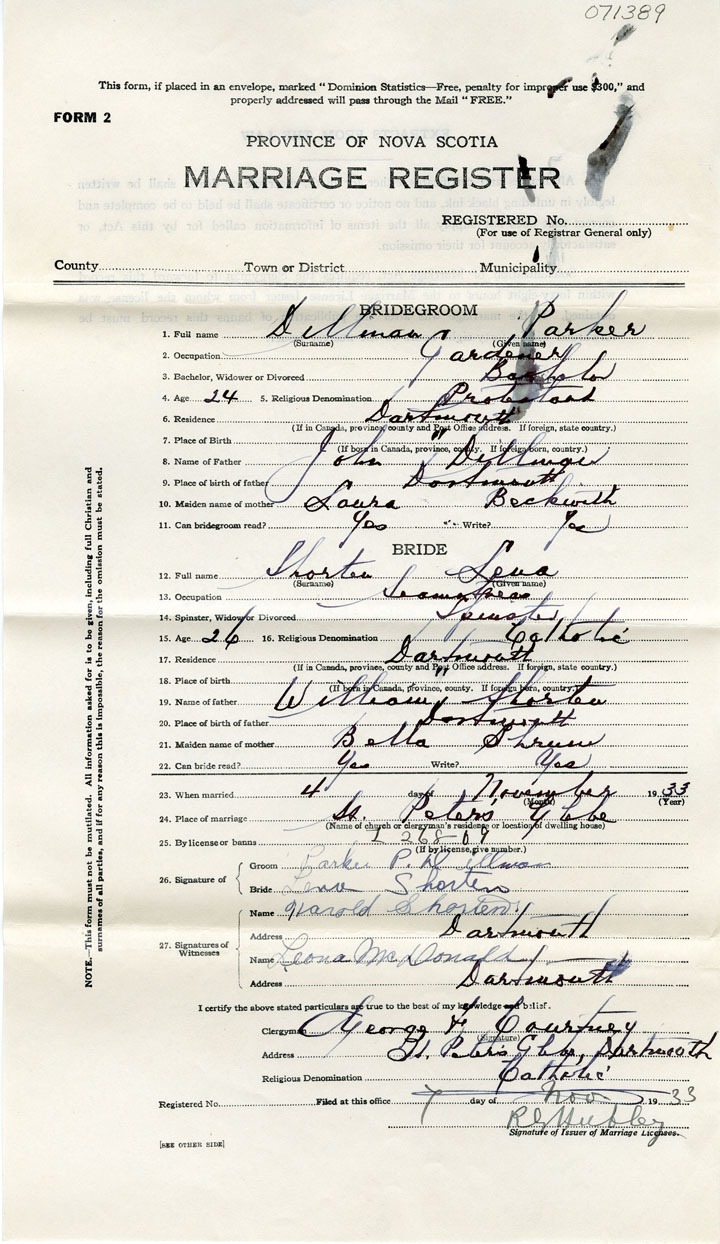 071389
This form, if placed in an envelope, marked "Dominion Statistics—Free, penalty for improper use $300," and
properly addressed will pass through the Mail "FREE."
FORM 2
PROVINCE OF NOVA SCOTIA
MARRIAGE REGISTER
REGISTERED No.
(For use of Registrar General only)
County Town or District Municipality
BRIDEGROOM
1. Full name Dillman Parker
(Surname) (Given name)
2. Occupation Gardener
3. Bachelor, Widower or Divorced Bachelor
4. Age 24 5. Religious Denomination Protestant
6. Residence Dartmouth
(If in Canada, province, county and Post Office address. If foreign, state country.)
7. Place of Birth "
(If born in Canada, province, county. If foreign born, country.)
8. Name of Father John Dillman
9. Place of birth of father Dartmouth
10. Maiden name of mother Laura Beckwith
11. Can bridegroom read? Yes Write? Yes
BRIDE
12. Full name Shorten Lena
(Surname) (Given name)
13. Occupation Seamstress
14. Spinster, Widow or Divorced Spinster
15. Age 26 16. Religious Denomination Catholic
17. Residence Dartmouth
(If in Canada, province, county and Post Office address. If foreign, state country.)
18. Place of birth "
(If born in Canada, province, county. If foreign born, country.)
19. Name of father William Shorten
20. Place of birth of father Dartmouth
21. Maiden name of mother Bella Shrum
22. Can bride read? Yes Write? Yes
23. When married 4 day of November 1933
(Month) (Year)
24. Place of marriage St. Peter's Glebe
(Name of church or clergyman's residence or location of dwelling house)
25. By license or banns I 268-09
(If by license, give number.)
26. Signature of
Groom Parker P. Dillman
Bride Lena Shorten
27. Signatures of Witnesses
Name Harold Shorten
Address Dartmouth
Name Leona McDonald
Address Dartmouth
I certify the above stated particulars are true to the best of my knowledge and belief.
Clergyman George H Courtney
(Signature)
Address St. Peter's Glebe, Dartmouth
Religious Denomination Catholic
Registered No. Filed at this office 7 day of Nov 1933
Signature of Issuer of Marriage Licenses.
[SEE OTHER SIDE]
NOTE.—This form must not be mutilated. All information asked for is to be given, including full Christian and
surnames of all parties, and if for any reason this is impossible, the reason for the omission must be stated.